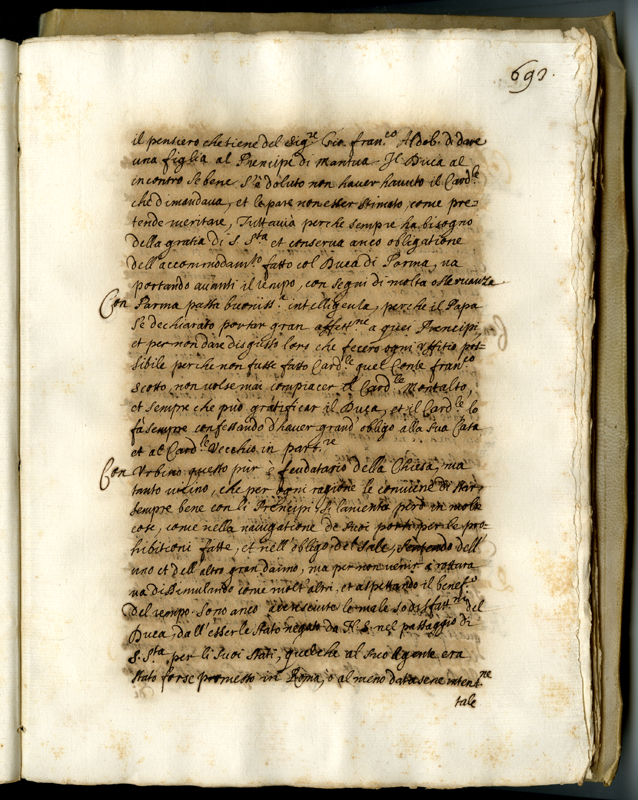 691.
il pensiero che tiene del Sig.re Gio. fran.co Aldob. di dare
una figlia al Prencipe di Mantua. Il Duca al
incontro se bene s'è doluto non haver havuto il Card.le
che dimandava, et le pare non esser stimato, come pre=
tende meritare, Tuttavia perche sempre ha bisogno
della gratia di S. S.ta et conserva anco obligatione
dell'accommodam.to fatto col Duca di Parma, va
portando avanti il tempo, con segni di molta osservanza
Con Parma passa buoniss.a intelligenza, perche il Papa
s'è dechiarato portar gran affett.ne a quei Prencipi,
et per non dare disgusto loro che fecero ogni offitio pos=
sibile perche non fusse fatto Card.le quel Conte fran.co
Scotto, non volse mai compiacer il Card.le Montalto,
et sempre che può gratificar il Duca, et il Card.le lo
fa sempre confessando d'haver grand'obligo alla sua Casa
et al Card.le Vecchio in part.re
Con Urbino questo pur è feudatario della Chiesa, ma
tanto vicino, che per ogni ragione le conviene di star
sempre bene con li Prencipi. Si lamenta però in molte
cose, come nella navigatione de suoi porti per le pro=
hibitioni fatte, et nell'obligo del sale, sentendo dell'
uno et dell'altro gran danno, ma per non venir a rottura
va dissimulando come molt'altri, et aspettando il benef.o
del tempo. Sono anco accresciute le male sodisfatt.ni del
Duca, dall'esserle stato negato da N. S. nel passaggio di
S. S.ta per li suoi stati, quel che al suo Agente era
stato forse promesso in Roma, o al meno datasene intent.ne
tale